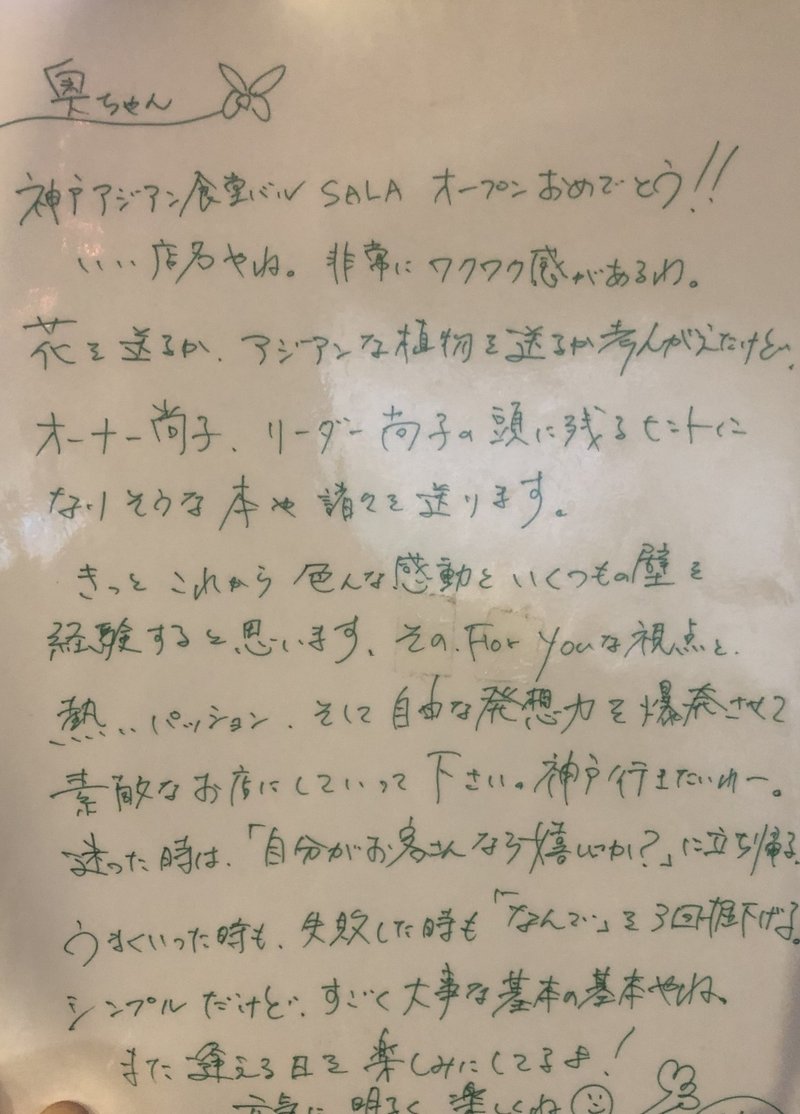 奥ちゃん
神戸アジアン食堂バル SALA オープンおめでとう!!
いい店名やね。非常にワクワク感があるわ。
花を送るか、アジアンな植物を送るか考んがえたけど、
オーナー尚子、リーダー尚子の頭に残るヒントに
なりそうな本や諸々を送ります。
きっと これから 色んな感動と いくつもの壁を
経験すると思います、その、For Youな視点と、
熱いパッション、そして自由な発想力を爆発させて
素敵なお店にしていって下さい。神戸行きたいわー。
迷った時は、「自分がお客さんなら嬉しいか?」に立ち帰る。
うまくいった時も、失敗した時も「なんで」を3回掘下げる。
シンプルだけど、すごく大事な基本の基本やね。
また逢える日を楽しみにしてるよ!
元気に 明るく 楽しくね